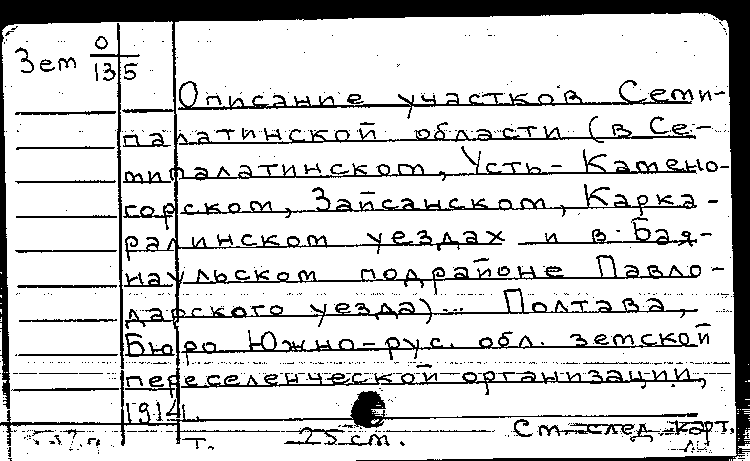 Зем О
135
Описание участков Семи-
палатинской области (в Се-
мипалатинском, Усть-Камено-
горском, Зайсанском, Карка-
ралинском уездах и в Бая-
наульском подрайоне Павло-
дарского уезда). Полтава,
Бюро Южно-рус. обл. земской
переселенческой организации,
1914.
т. 25 см. См. след. карт.